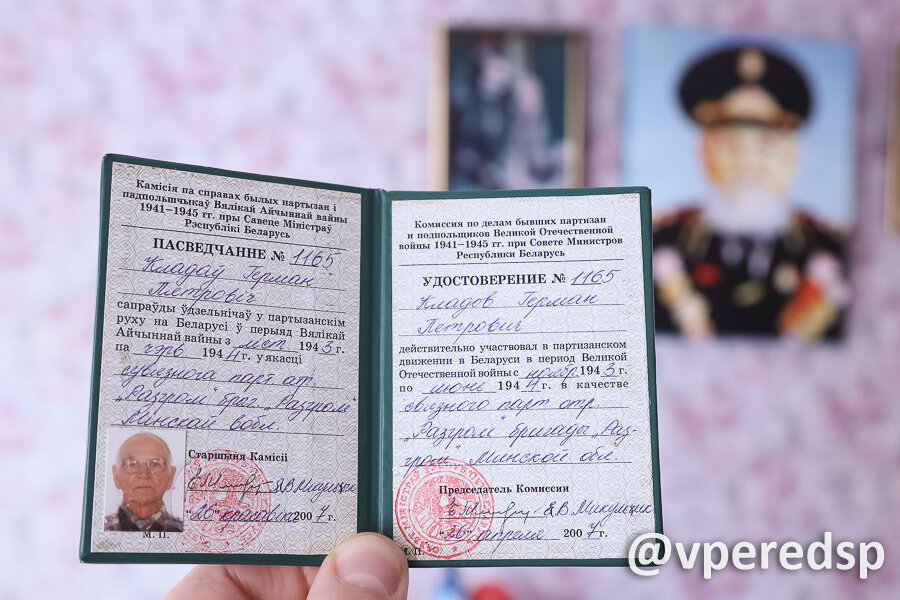 Камісія па справах былых партызан і
падпольшчыкаў Вялікай Айчыннай вайны
1941–1945 гг. пры Савеце Міністраў
Рэспублікі Беларусь
ПАСВЕДЧАННЕ № 1165
Кладаў Герман
Пятровіч
сапраўды ўдзельнічаў у партызанскім
руху на Беларусі ў перыяд Вялікай
Айчыннай вайны з ліст 1943 г.
па чэрв 1944 г. у якасці
сувязнога парт ат.
"Разгром" брыг. "Разгром"
Мінскай вобл.
Старшыня Камісіі
"26" красавіка 2007 г.
М. П.
Комиссия по делам бывших партизан
и подпольщиков Великой Отечественной
войны 1941–1945 гг. при Совете Министров
Республики Беларусь
УДОСТОВЕРЕНИЕ № 1165
Кладов Герман
Петрович
действительно участвовал в партизанском
движении в Беларуси в период Великой
Отечественной войны с ноябр 1943 г.
по июнь 1944 г. в качестве
связного парт отр.
"Разгром" бригады "Раз-
гром" Минской обл.
Председатель Комиссии
"26" апреля 2007 г.
М. П.
@vperedsp